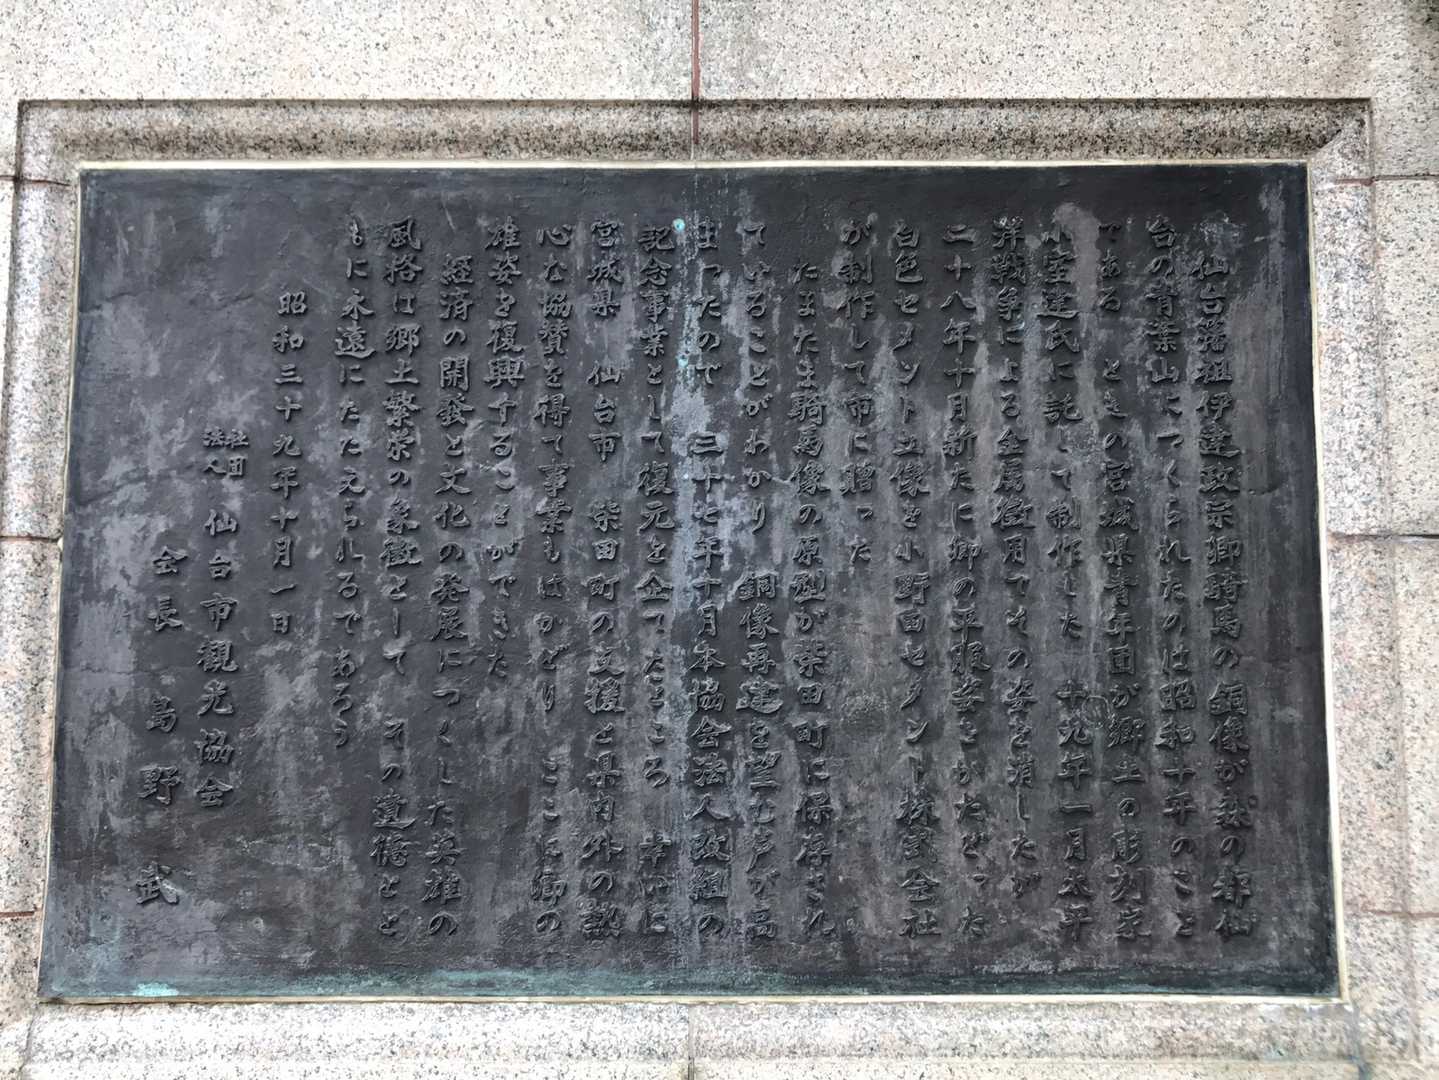 仙台藩祖伊達政宗卿騎馬の銅像が森の都仙
台の青葉山につくられたのは昭和十年のこと
である ときの宮城県青年団が郷土の彫刻家
小室達氏に託して制作した 十九年一月太平
洋戦争による金属徴用でその姿を消したが
二十八年十月新たに卿の平服姿をかたどった
白色セメント立像を小野田セメント株式会社
が制作して市に贈った
たまたま騎馬像の原型が柴田町に保存され
ていることがわかり 銅像再建を望む声が高
まったので 三十七年十月本協会法人改組の
記念事業として復元を企てたところ 幸いに
宮城県 仙台市 柴田町の支援と県内外の熱
心な協賛を得て事業もはかどり ここに卿の
雄姿を復興することができた
経済の開發と文化の発展につくした英雄の
風格は郷土繁栄の象徴として その遺徳とと
もに永遠にたたえられるであろう
昭和三十九年十月一日
社団法人 仙台市観光協会
会長 島野武